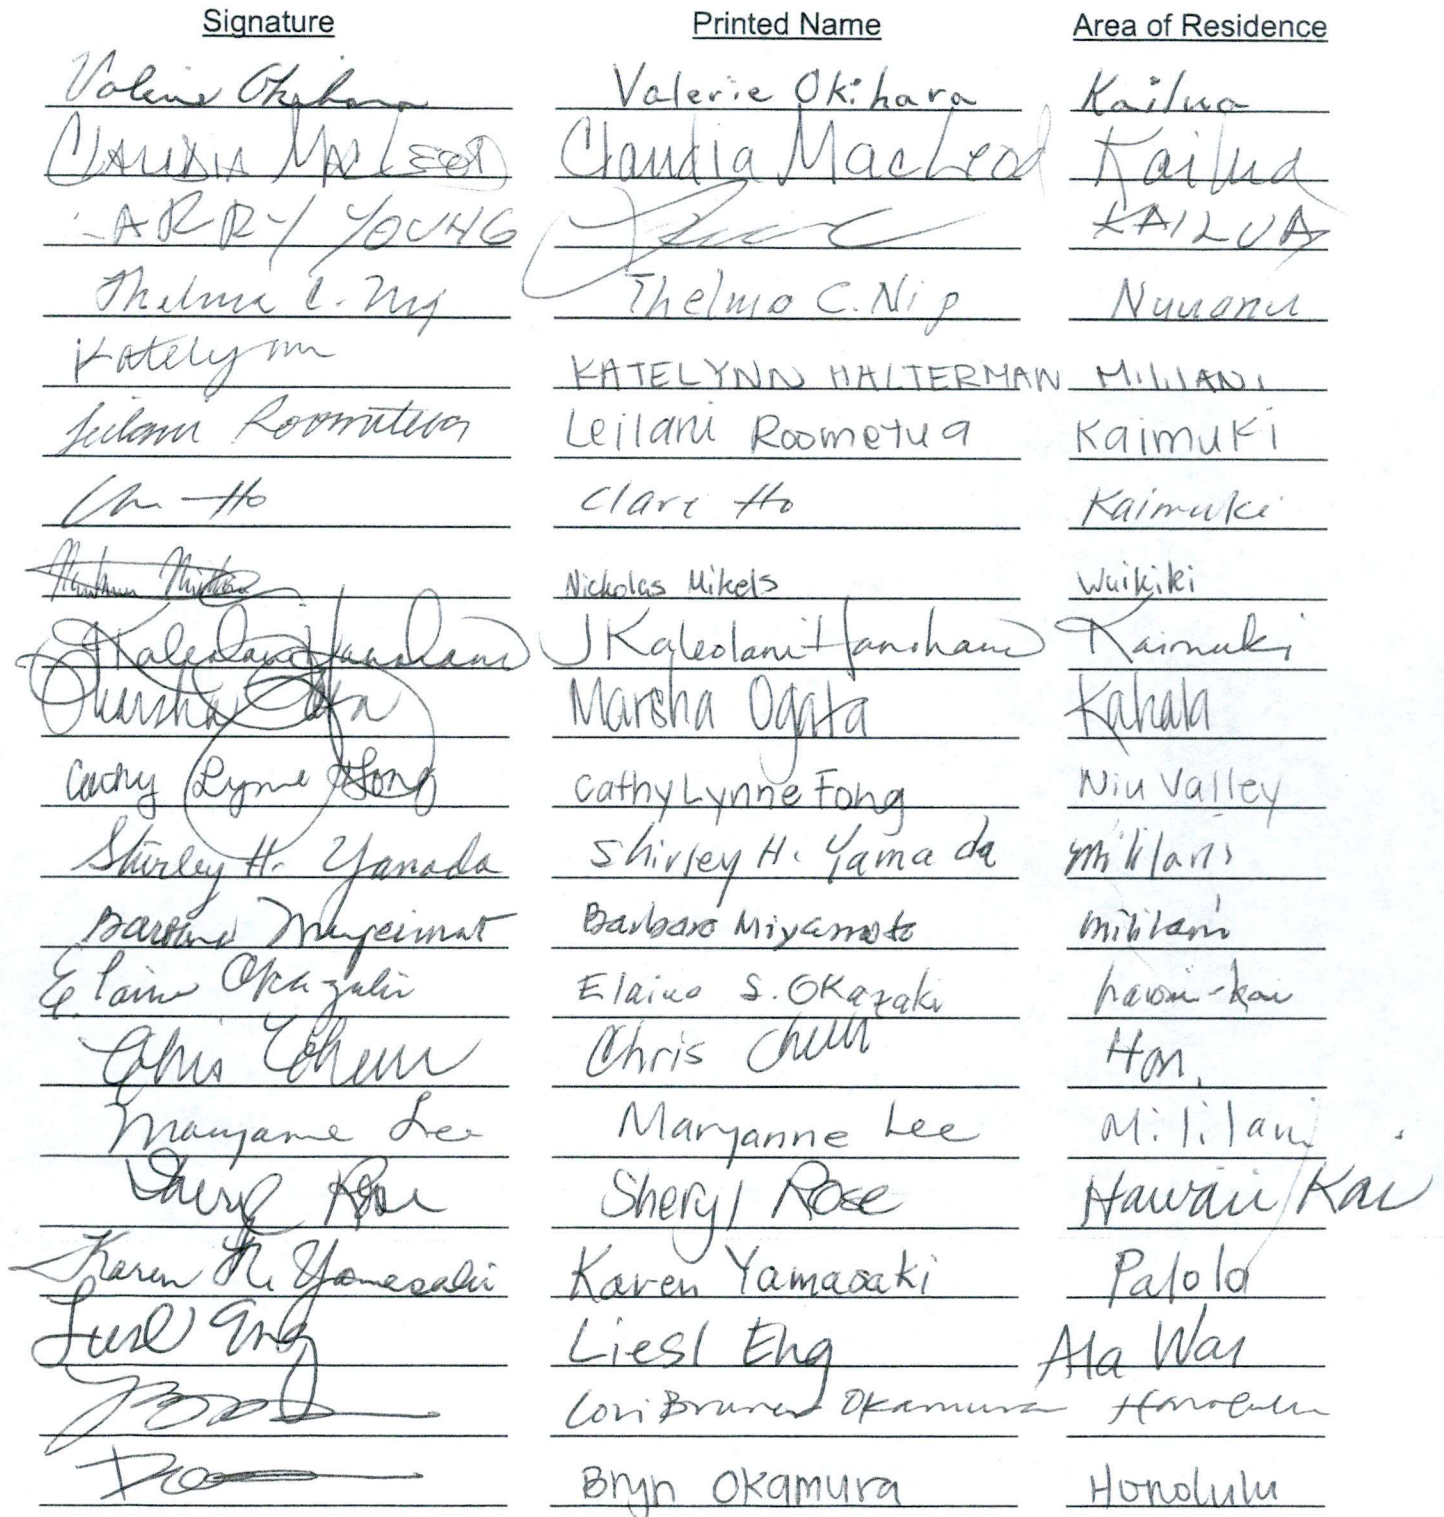 Signature Printed Name Area of Residence
Valerie Okihara Valerie Okihara Kailua
CLAUDIA MACLEOD Claudia MacLeod Kailua
LARRY YOUNG KAILUA
Thelma C. Nip Thelma C. Nip Nuuanu
Katelynn KATELYNN HALTERMAN MILILANI
Leilani Roometua Leilani Roometua Kaimuki
Ho Clare Ho Kaimuki
Nickolas Mikels Waikiki
JKaleolani Hanohano JKaleolani Hanohano Kaimuki
Marsha Ogata Marsha Ogata Kahala
Cathy Lynne Fong Cathy Lynne Fong Niu Valley
Shirley H. Yamada Shirley H. Yamada Mililani
Barbara Miyamoto Barbara Miyamoto Mililani
Elaine Okazaki Elaine S. Okazaki hawaii-kai
Chris Chun Chris Chun Hon.
Maryanne Lee Maryanne Lee Mililani
Sheryl Rose Sheryl Rose Hawaii Kai
Karen M. Yamasaki Karen Yamasaki Palolo
Liesl Eng Liesl Eng Ala Wai
Lori Bruner Okamura Honolulu
Bryn Okamura Honolulu